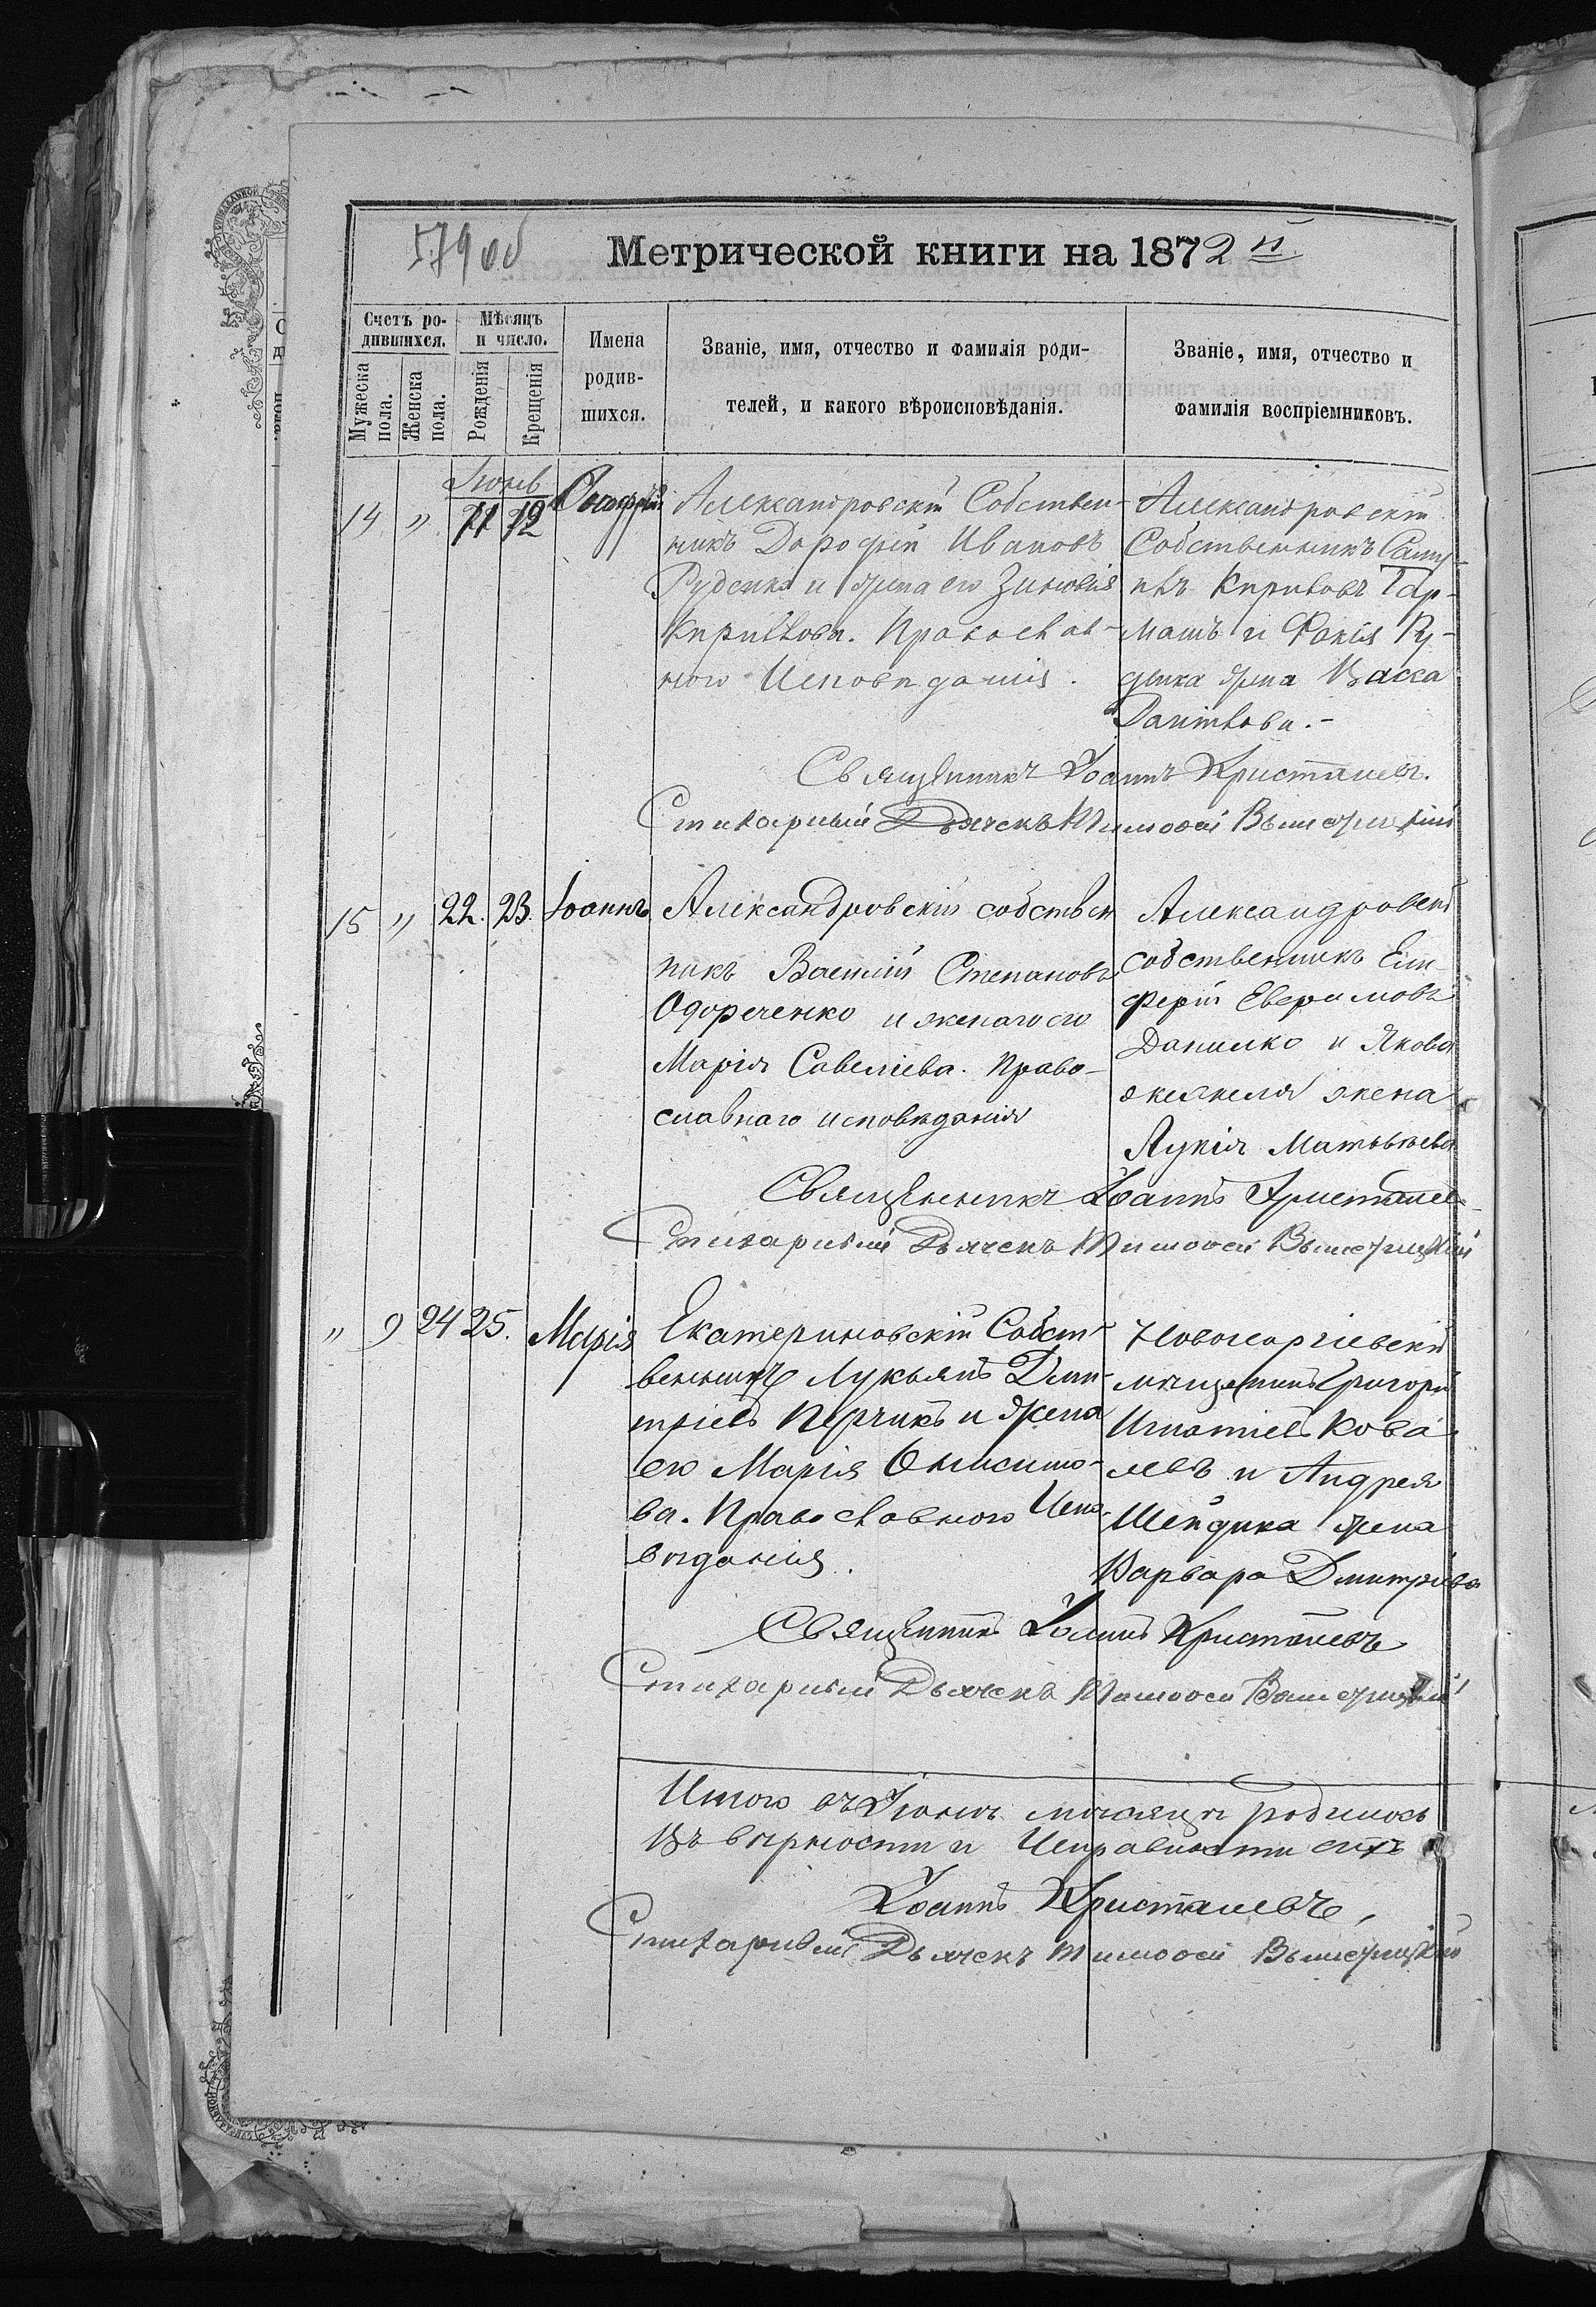 579 об
Метрической книги на 1872 й
Счетъ ро-
дившихся.
Мѣсяцъ
и число.
Мужеска
пола.
Женска
пола.
Рожденія
Крещенія
Имена
родив-
шихся.
Званіе, имя, отчество и фамилія роди-
телей, и какого вѣроисповѣданія.
Званіе, имя, отчество и
фамилія воспріемниковъ.
Іюнь
14 " 11 12 Онуфрій
Александровскій Собствен-
никъ Дорофей Ивановъ
Руденко и жена его Зиновія
Кирилова. Православ-
ного Исповѣданія.
Александровскій
Собственникъ
Кириловъ Гар-
машъ и Фокія Ру-
денка жена Васса
Данилова.-
Священникъ Іоаннъ Кристалевъ.
Стихарный Дьячекъ Тимофей
15 " 22. 23. Іоаннъ
Александровскій собствен
никъ Василій Степановъ
Одореченко и жена его
Марія Савеліева. Право-
славнаго исповѣданія
Александровскій
собственникъ Ели-
ферій Евфимовъ
Данилко и Якова
жена
Лукія Матвѣева
Священникъ Іоаннъ Кристалев
Стихарный Дьячекъ Тимофей
" 9 24 25. Марія
Екатериновскій Собст-
венникъ Лукьянъ Дми-
тріевъ Перчикъ и жена
его Марія Онисимо-
ва. Православного Испо-
вѣданія.
Новогеоргіевскій
мѣщанинъ Григорій
Игнатіевъ Кова-
левъ и Андрея
Шейдика жена
Варвара Дмитріева
Священникъ Іоаннъ Кристалевъ
Стихарный Дьячекъ Тимофей
Итого въ Іюнѣ мѣсяцѣ родилось
Въ вѣрности и Исправности
Іоаннъ Кристалевъ,
Стихарный Дьячекъ Тимофей